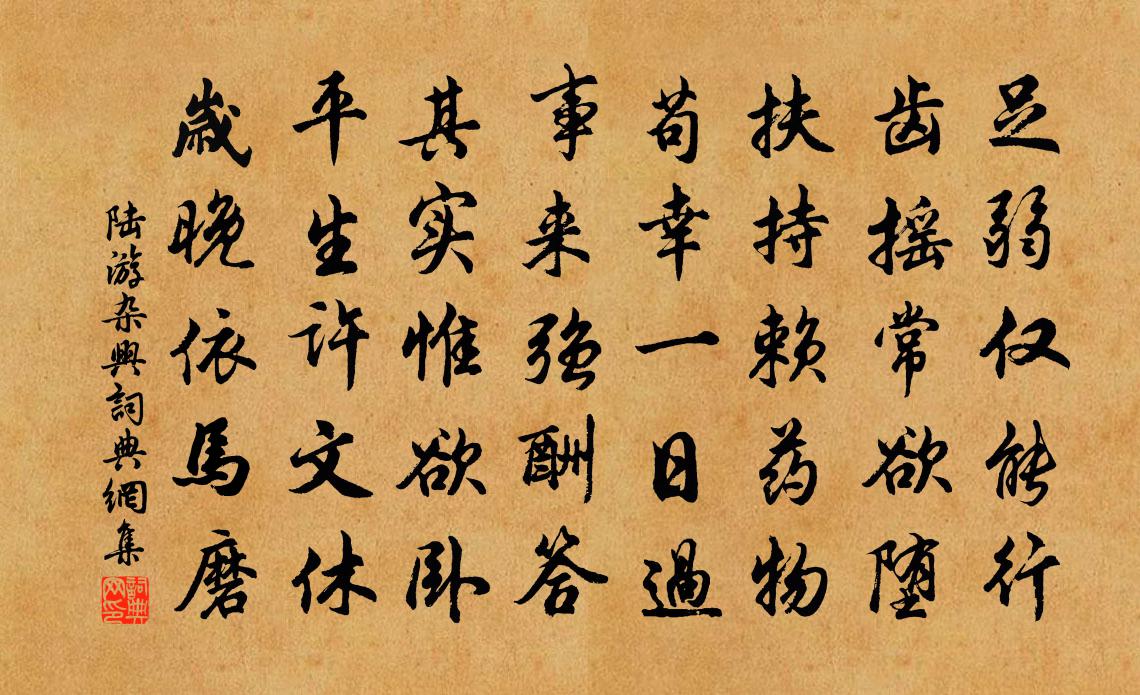 足弱仅能行
齿摇常欲堕
扶持赖药物
苟幸一日過
事来强酬答
其实惟欲卧
平生许文休
歳晚依馬磨
陆游杂興詞典網集
詞典网印